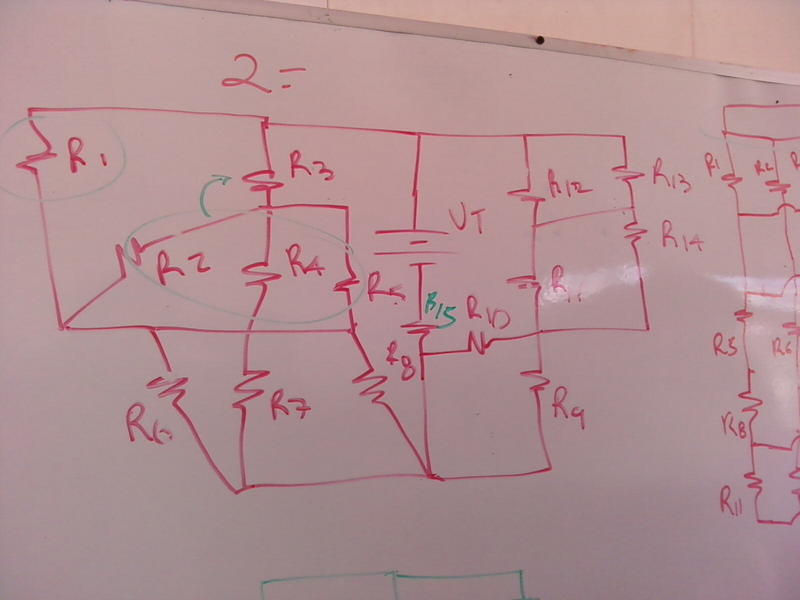 2=
R1
R3
R12
R13
VT
R2
R4
R5
R14
R15
R10
R11
R8
R6
R7
R9
R1
R5
R6
R8
R11